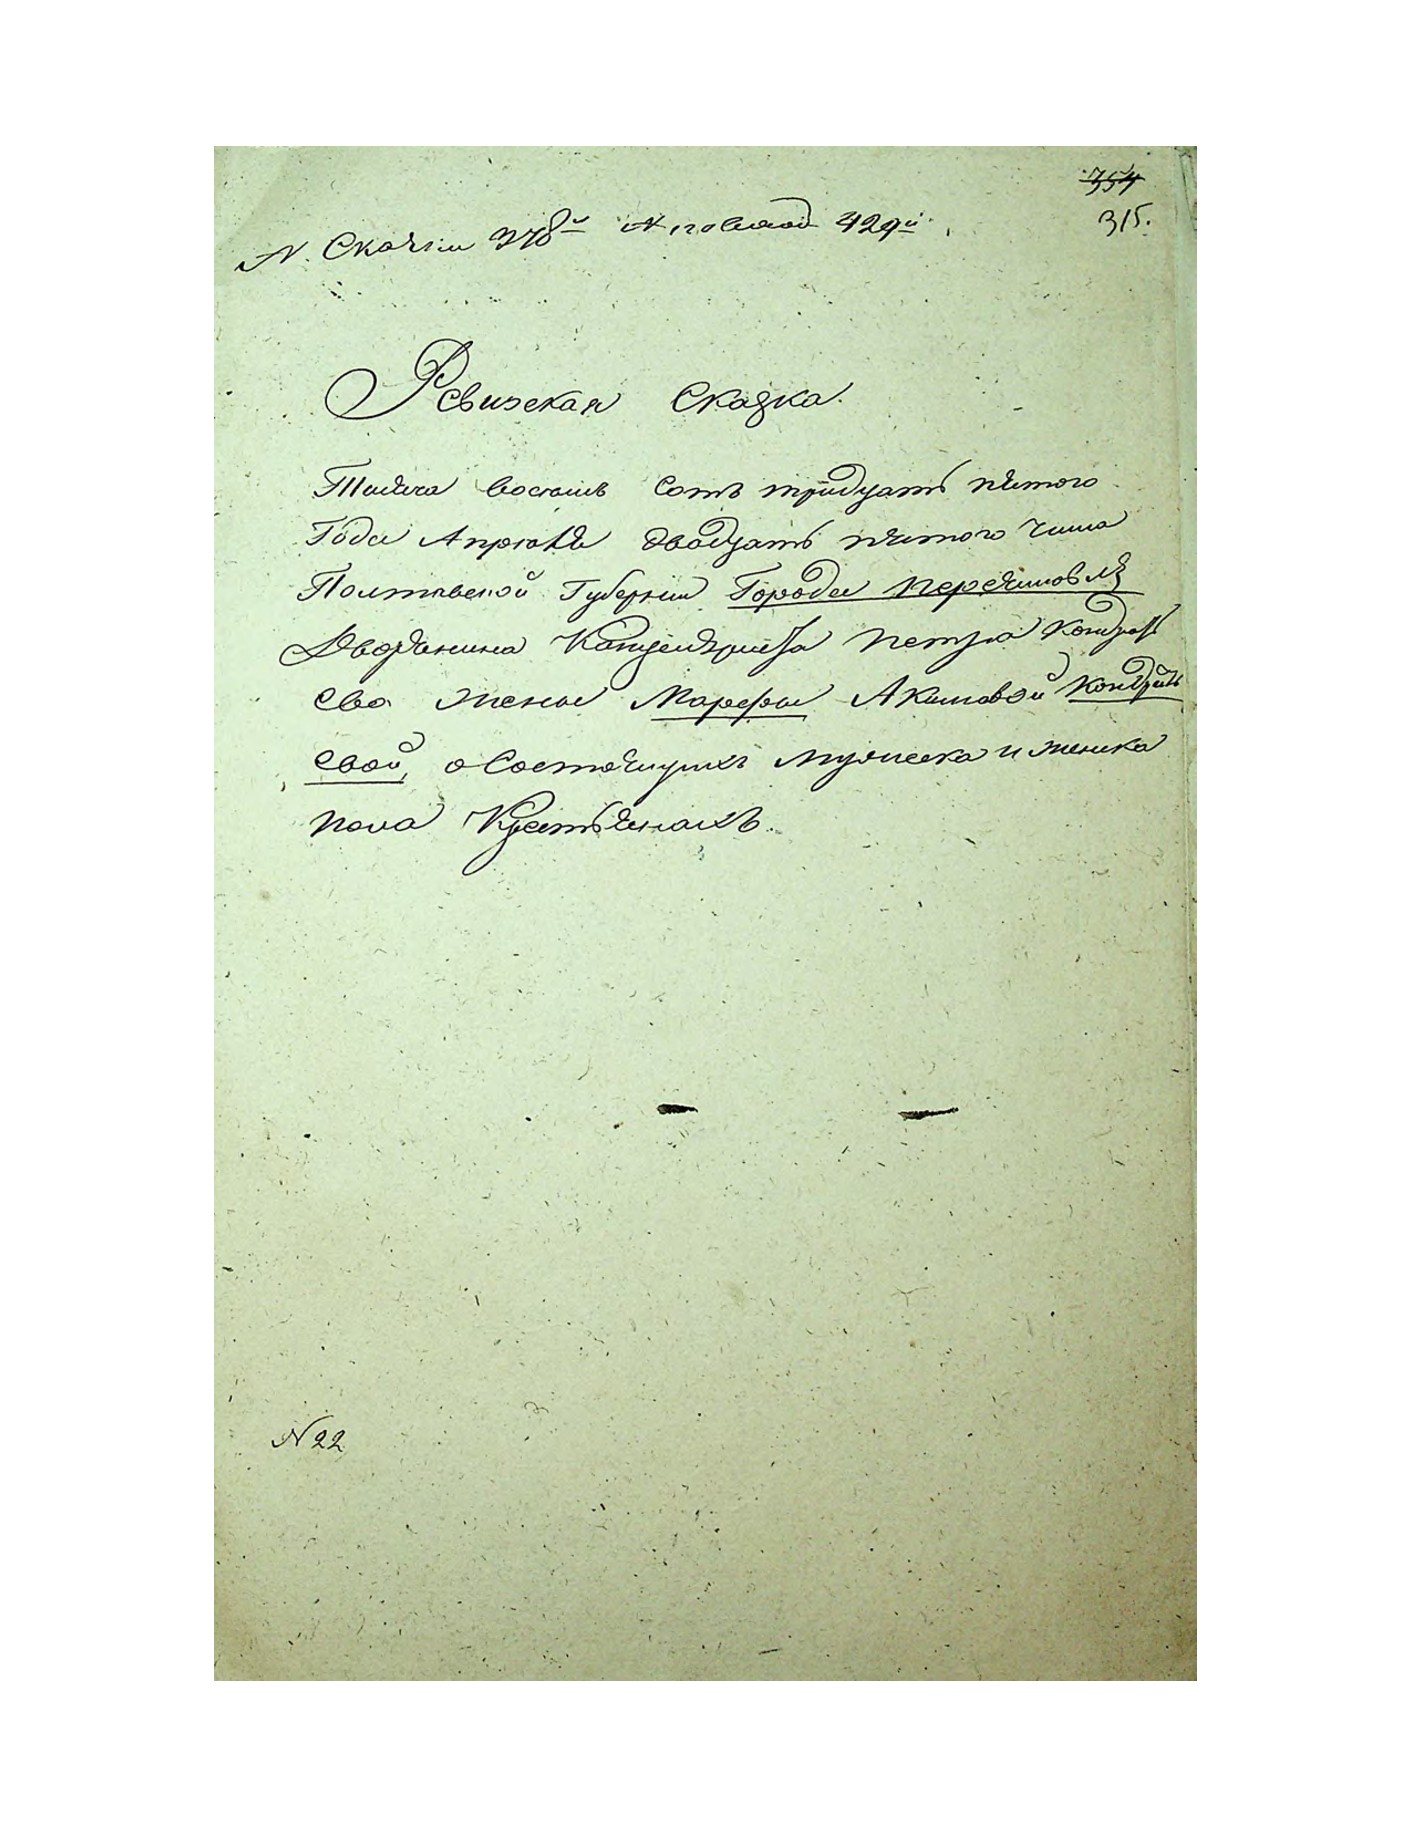 354
315.
N. Скачки 378й N, по 429й.
Ревизская Сказка.
Тысяча восемь сотъ тридцать пятого
Года Апреля двадцать пятого числа
Полтавской Губернии Города Переяславля
Дворянина Петра Кондрать
ево жены Марфы Акимовой Кондрать
евой, о Состоящихъ мужеска и женска
пола Крестьянахъ.
N 22